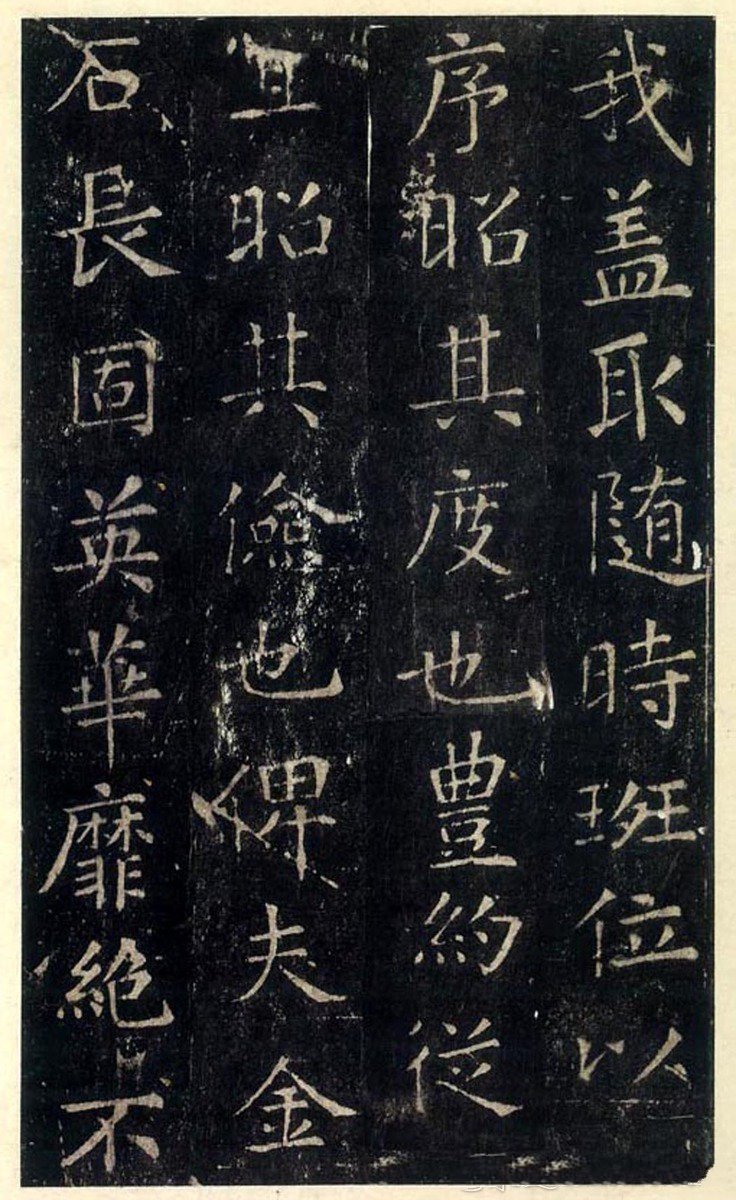 我盖取随時班位以
序昭其度也豊約従
宜昭共儉也俾夫金
石長固英華靡絶不